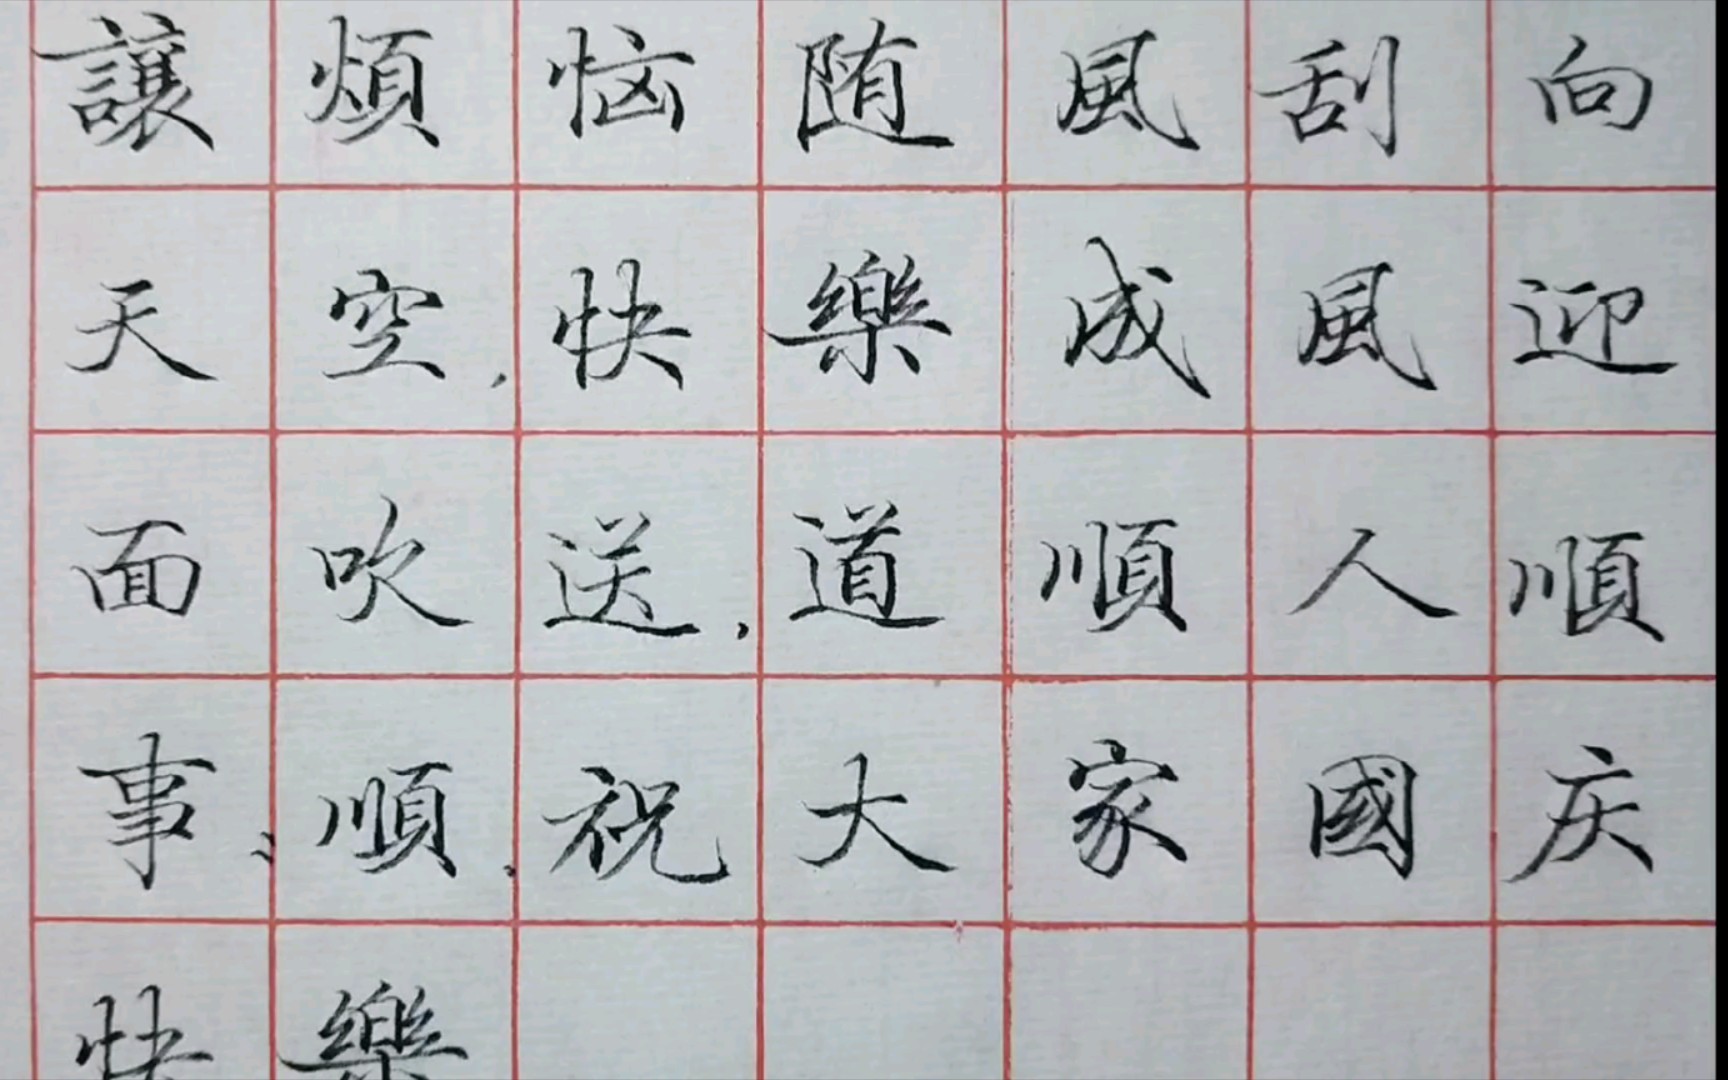 讓煩恼随風刮向
天空,快樂成風迎
面吹送,道順人順
事順.祝大家國庆
快樂